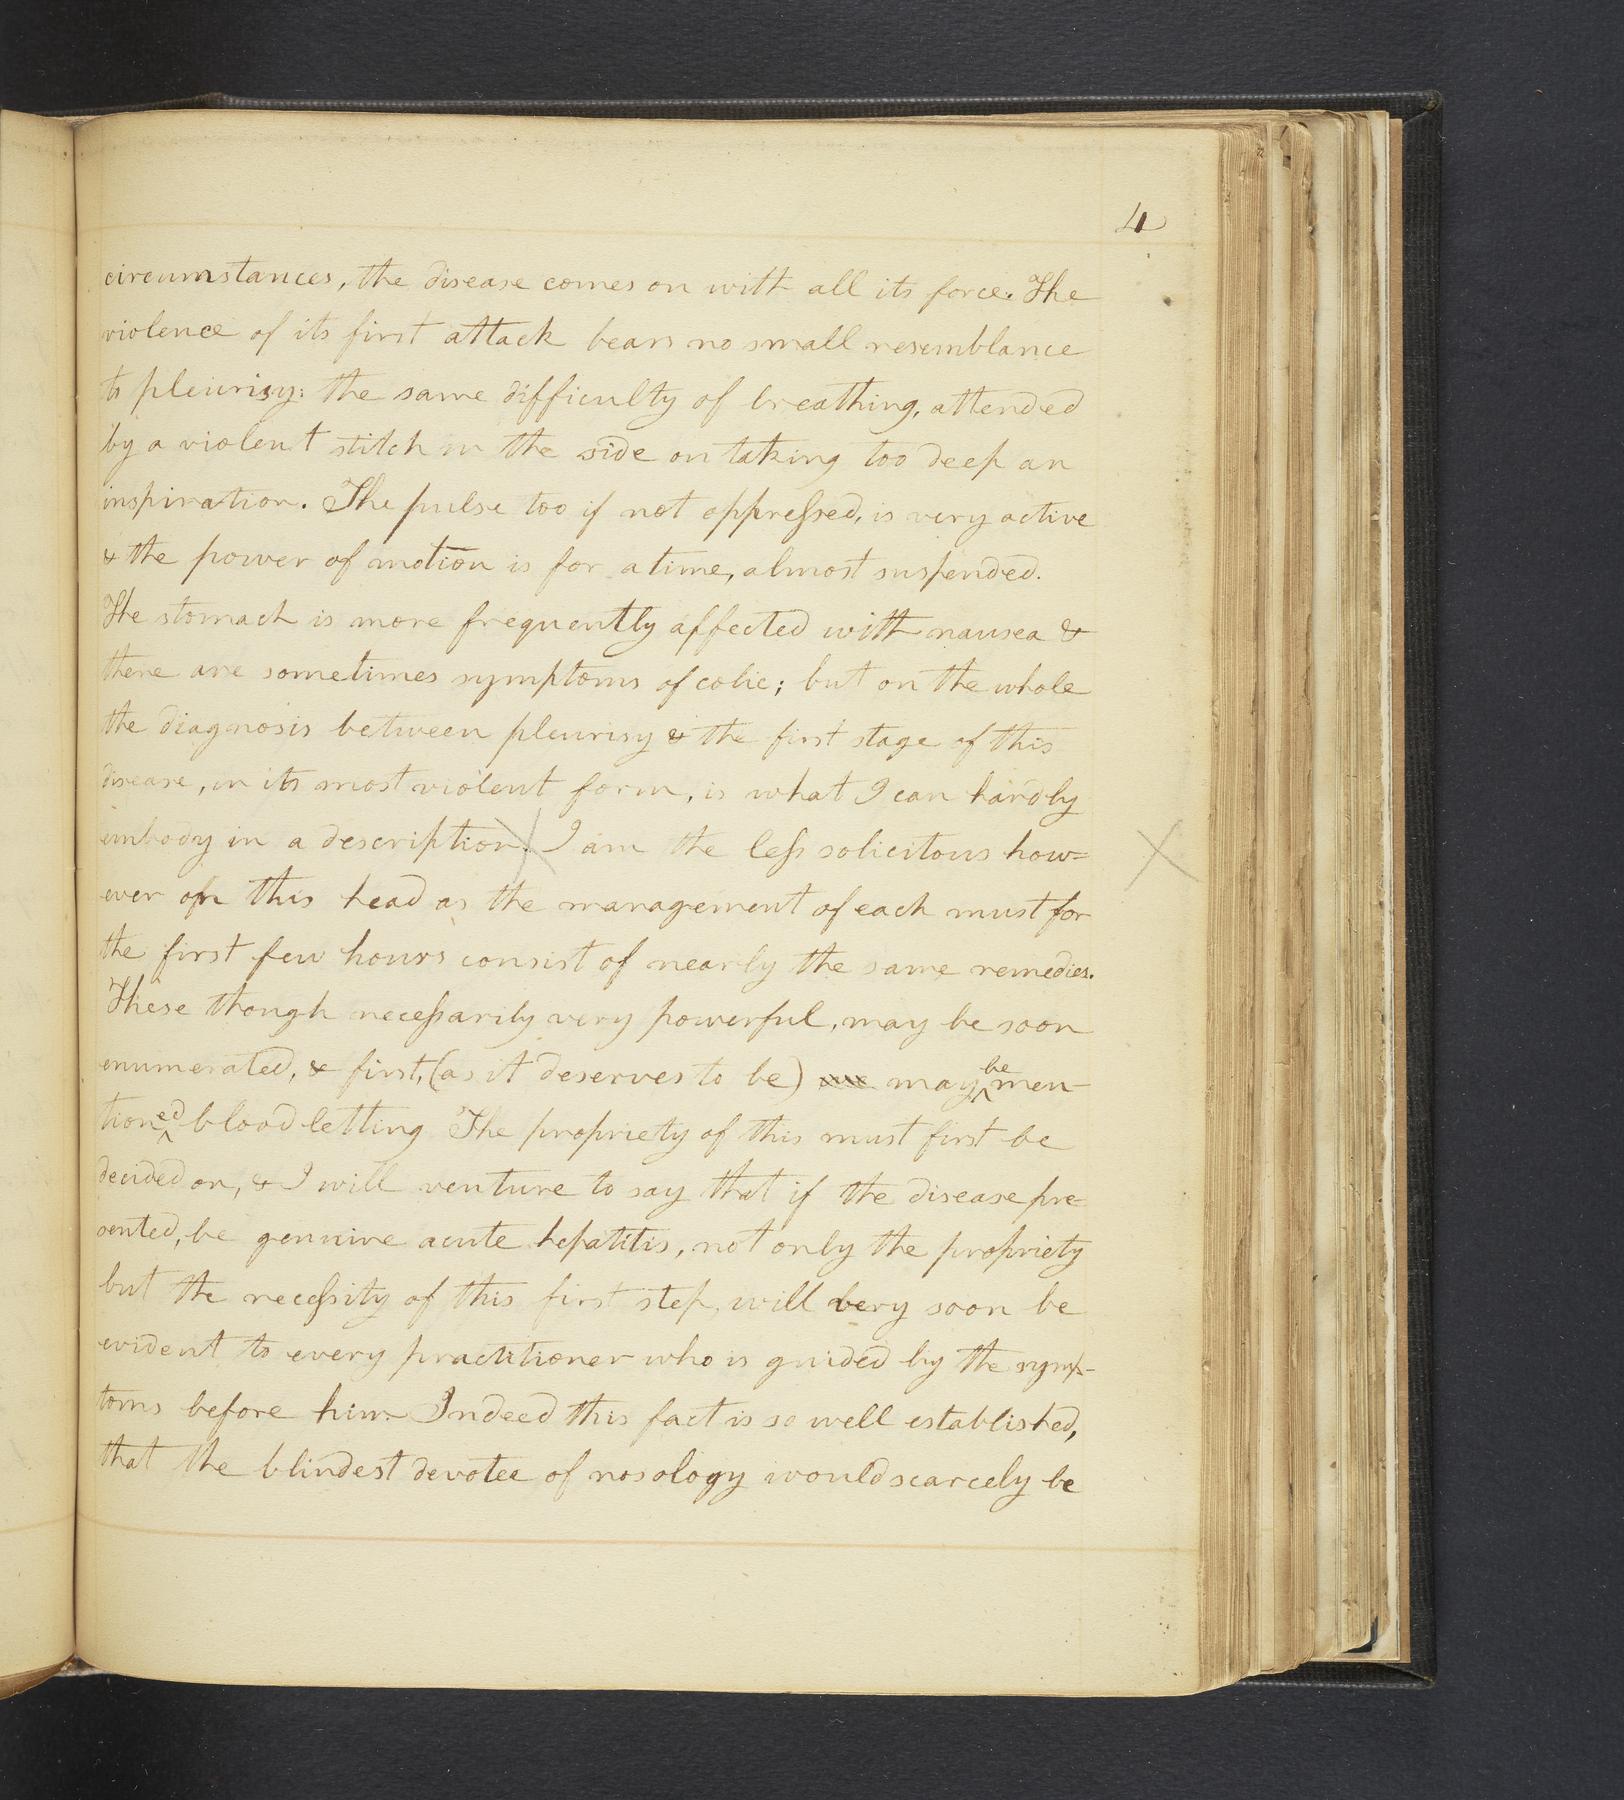 4
circumstances, the disease comes on with all its force. The
violence of its first attack bears no small resemblance
to pleurisy: the same difficulty of breathing, attended
by a violent stitch in the side on taking too deep an
inspiration. The pulse too if not oppressed, is very active
& the power of motion is for a time, almost suspended.
The stomach is more frequently affected with nausea &
there are sometimes symptoms of colic; but on the whole
the diagnosis between pleurisy & the first stage of this
disease, in its most violent form, is what I can hardly
embody in a description. I am the less solicitous how=
ever on this head as the management of each must for
the first few hours consist of nearly the same remedies.
These though necessarily very powerful, may be soon
enumerated, & first, (as it deserves to be) may be men-
tioned bloodletting The propriety of this must first be
decided on, & I will venture to say that if the disease pre-
sented, be genuine acute hepatitis, not only the propriety
but the necessity of this first step, will very soon be
evident to every practitioner who is guided by the symp-
toms before him. Indeed this fact is so well established,
that the blindest devotee of nosology would scarcely be